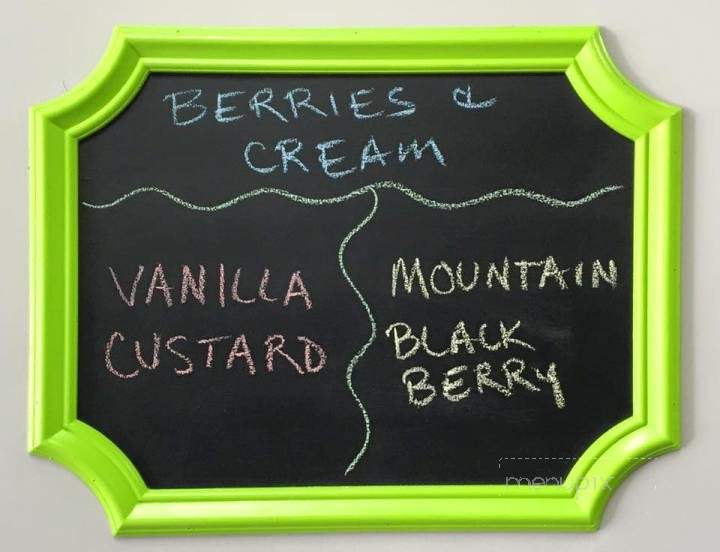 BERRIES &
CREAM
VANILLA
CUSTARD
MOUNTAIN
BLACK
BERRY
menupix